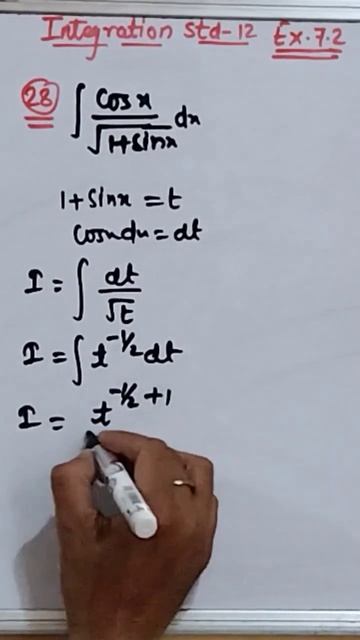 Integration Std-12 Ex.7.2
28 ∫ cosx / √1+sinx dx
1+sinx = t
cosxdx = dt
I = ∫ dt / √t
I = ∫ t^-1/2 dt
I = t^-1/2 + 1